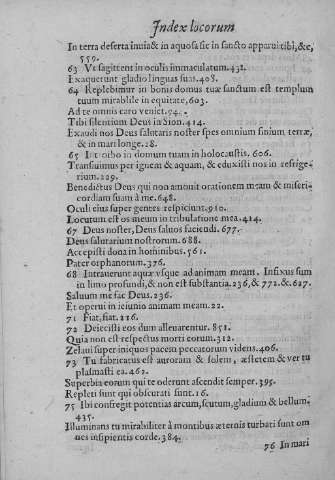 Index locorum
In terra deserta inuia & in aquosa sic in sancto apparui tibi, &c,
559.
63 Vt sagittent in occulis immaculatum. 431.
Exacuerunt gladio linguas suas. 408.
64 Replebimur in bonis domus tuæ sanctum est templum
tuum mirabile in equitate, 603.
Ad te omnis caro veniet. 74.
Tibi silentium Deus in Sion. 414.
Exaudi nos Deus salutaris noster spes omnium finium terræ,
& in mari longe. 28.
65 Introibo in domum tuam in holocaustis. 606.
Transiuimus per igneat & aquam, & eduxisti nos in refrige-
rium. 229.
Benedictus Deus qui non amouit orationem meam & miseri-
cordiam suam à me. 648.
Oculi eius super gentes respiciunt. 910.
Locutum est os meum in tribulatione mea. 414.
67 Deus noster, Deus saluos faciendi. 677.
Deus salutarium nostrorum. 688.
Accepisti dona in hominibus. 561.
Pater orphanorum. 376.
68 Intrauerunt aquæ vsque ad animam meam. Infixus sum
in limo profundi, & non est substantia. 236, & 772. &. 627.
Saluum me fac Deus. 236.
Et operui in ieiunio animam meam. 22.
71 Fiat, fiat. 216.
72 Deiecisti eos dum alleuarentur. 851.
Quia non est respectus morti eorum. 312.
Zelaui super iniquos pacem peccatorum videns. 406.
73 Tu fabricatus est auroram & solem, æstatem & ver tu
plasmasti ea. 462.
Superbia eorum qui te oderunt ascendit semper. 395.
Repleti sunt qui obscurati sunt. 16.
75 Ibi confregit potentias arcum, scutum, gladium & bellum-
435.
Illuminans tu mirabiliter à montibus æternis turbati sunt om
nes insipientis corde. 384.
76 In mari